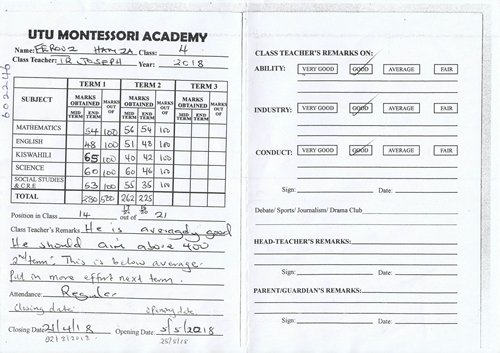 UTU MONTESSORI ACADEMY
Name: FEROUZ HAMZA Class: 4
Class Teacher: TR. JOSEPH Year: 2018
602246
TERM 1 TERM 2 TERM 3
SUBJECT MARKS OBTAINED MARKS OUT OF MARKS OBTAINED MARKS OUT OF MARKS OBTAINED MARKS OUT OF
MID TERM END TERM MID TERM END TERM MID TERM END TERM
MATHEMATICS 54 100 56 54 100
ENGLISH 48 100 51 48 100
KISWAHILI 65 100 40 42 100
SCIENCE 60 100 60 46 100
SOCIAL STUDIES & C.R.E 53 100 55 35 100
TOTAL 280 500 262 225
Position in Class 14 out of 21
Class Teacher's Remarks He is averagely good
He should aim above 400
2nd term. This is below average.
Put in more effort next term.
Attendance: Regular
Closing date: Opening date:
Closing Date: 25/4/18 Opening Date: 5/5/2018
02/8/2018 25/5/18
CLASS TEACHER'S REMARKS ON:
ABILITY: VERY GOOD GOOD AVERAGE FAIR
INDUSTRY: VERY GOOD GOOD AVERAGE FAIR
CONDUCT: VERY GOOD GOOD AVERAGE FAIR
Sign: Date:
Debate/ Sports/ Journalism/ Drama Club
HEAD-TEACHER'S REMARKS:
Sign: Date:
PARENT/GUARDIAN'S REMARKS:
Sign: Date: